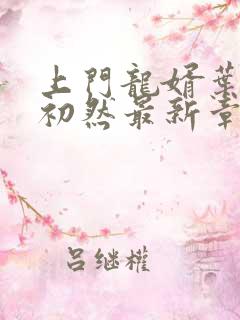 上門龍婿葉
初然最新章
吕继權